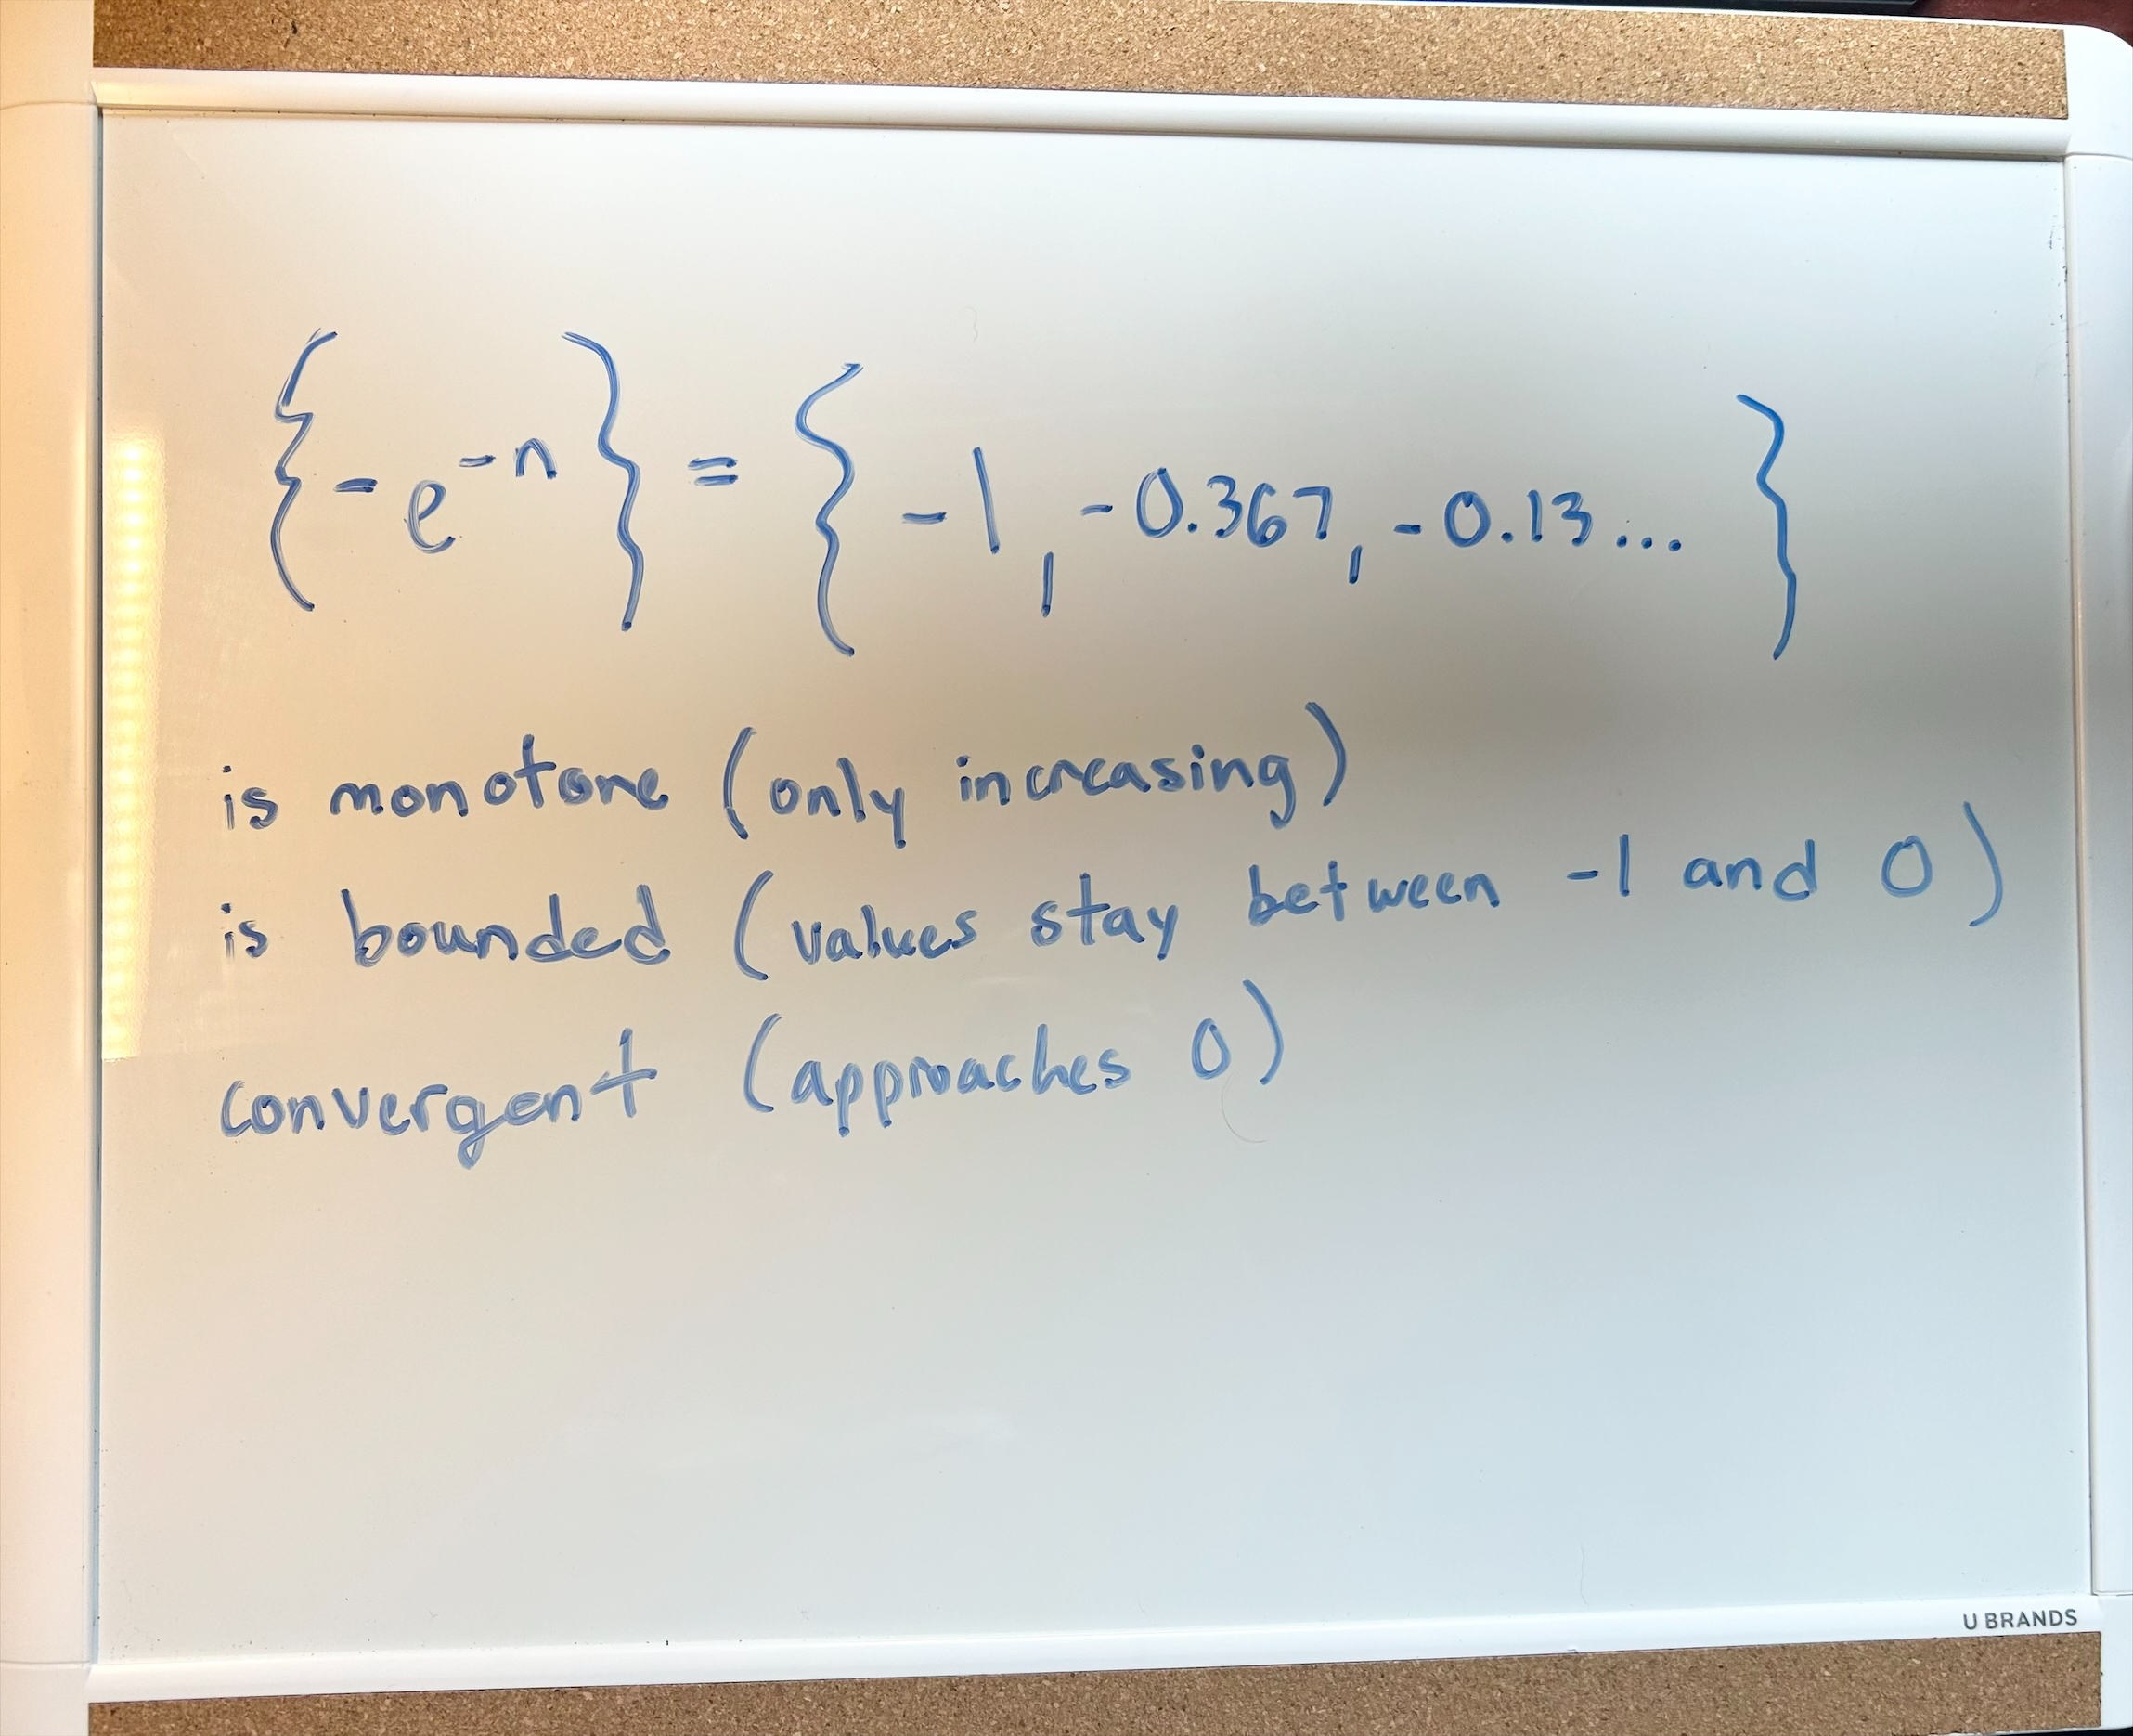 {-e^{-n}} = {-1, -0.367, -0.13...}
is monotone (only increasing)
is bounded (values stay between -1 and 0)
convergent (approaches 0)
U BRANDS